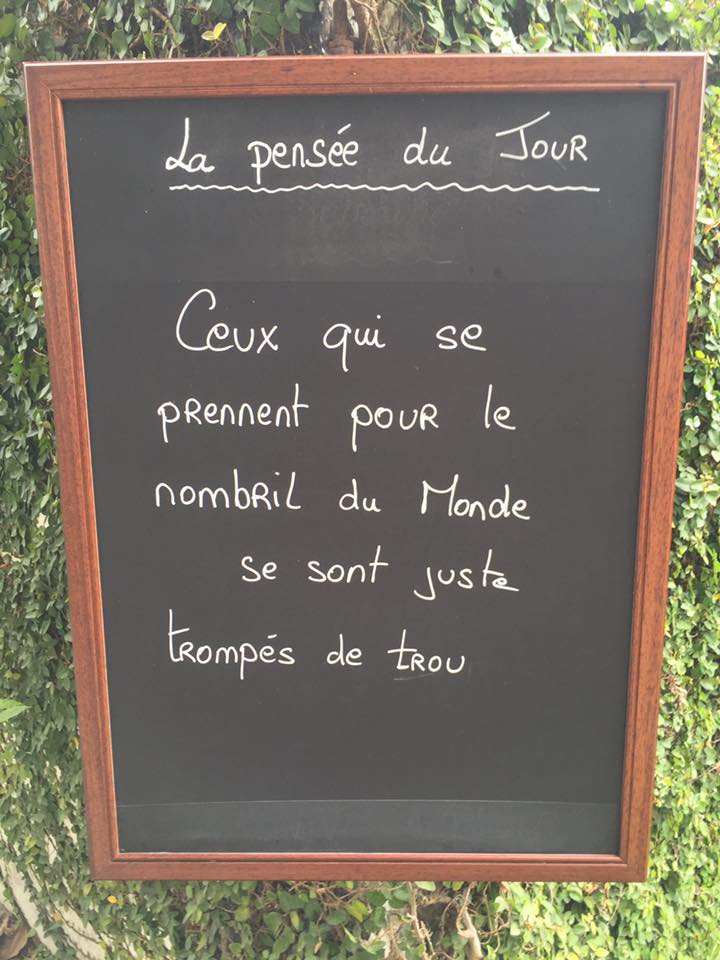 La pensée du Jour
Ceux qui se
prennent pour le
nombril du Monde
se sont juste
trompés de trou